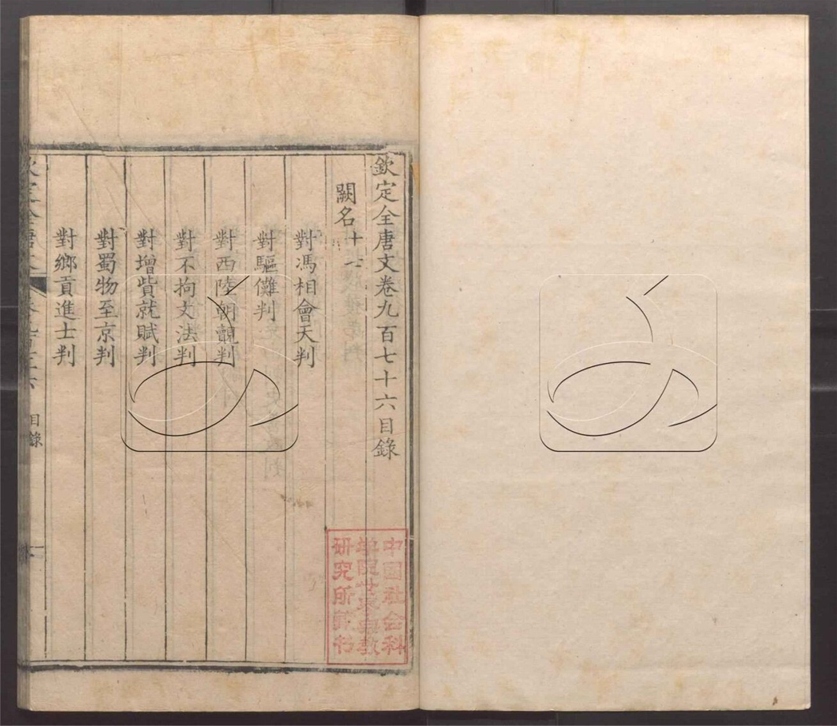 欽定全唐文卷九百七十六目錄
闕名十七
對馮相會天判
對驅儺判
對西陸朝覿判
對不拘文法判
對增貲就賦判
對蜀物至京判
對鄉貢進士判
欽定全唐文
目錄
一
中國社会科
学院世界宗教
研究所藏书